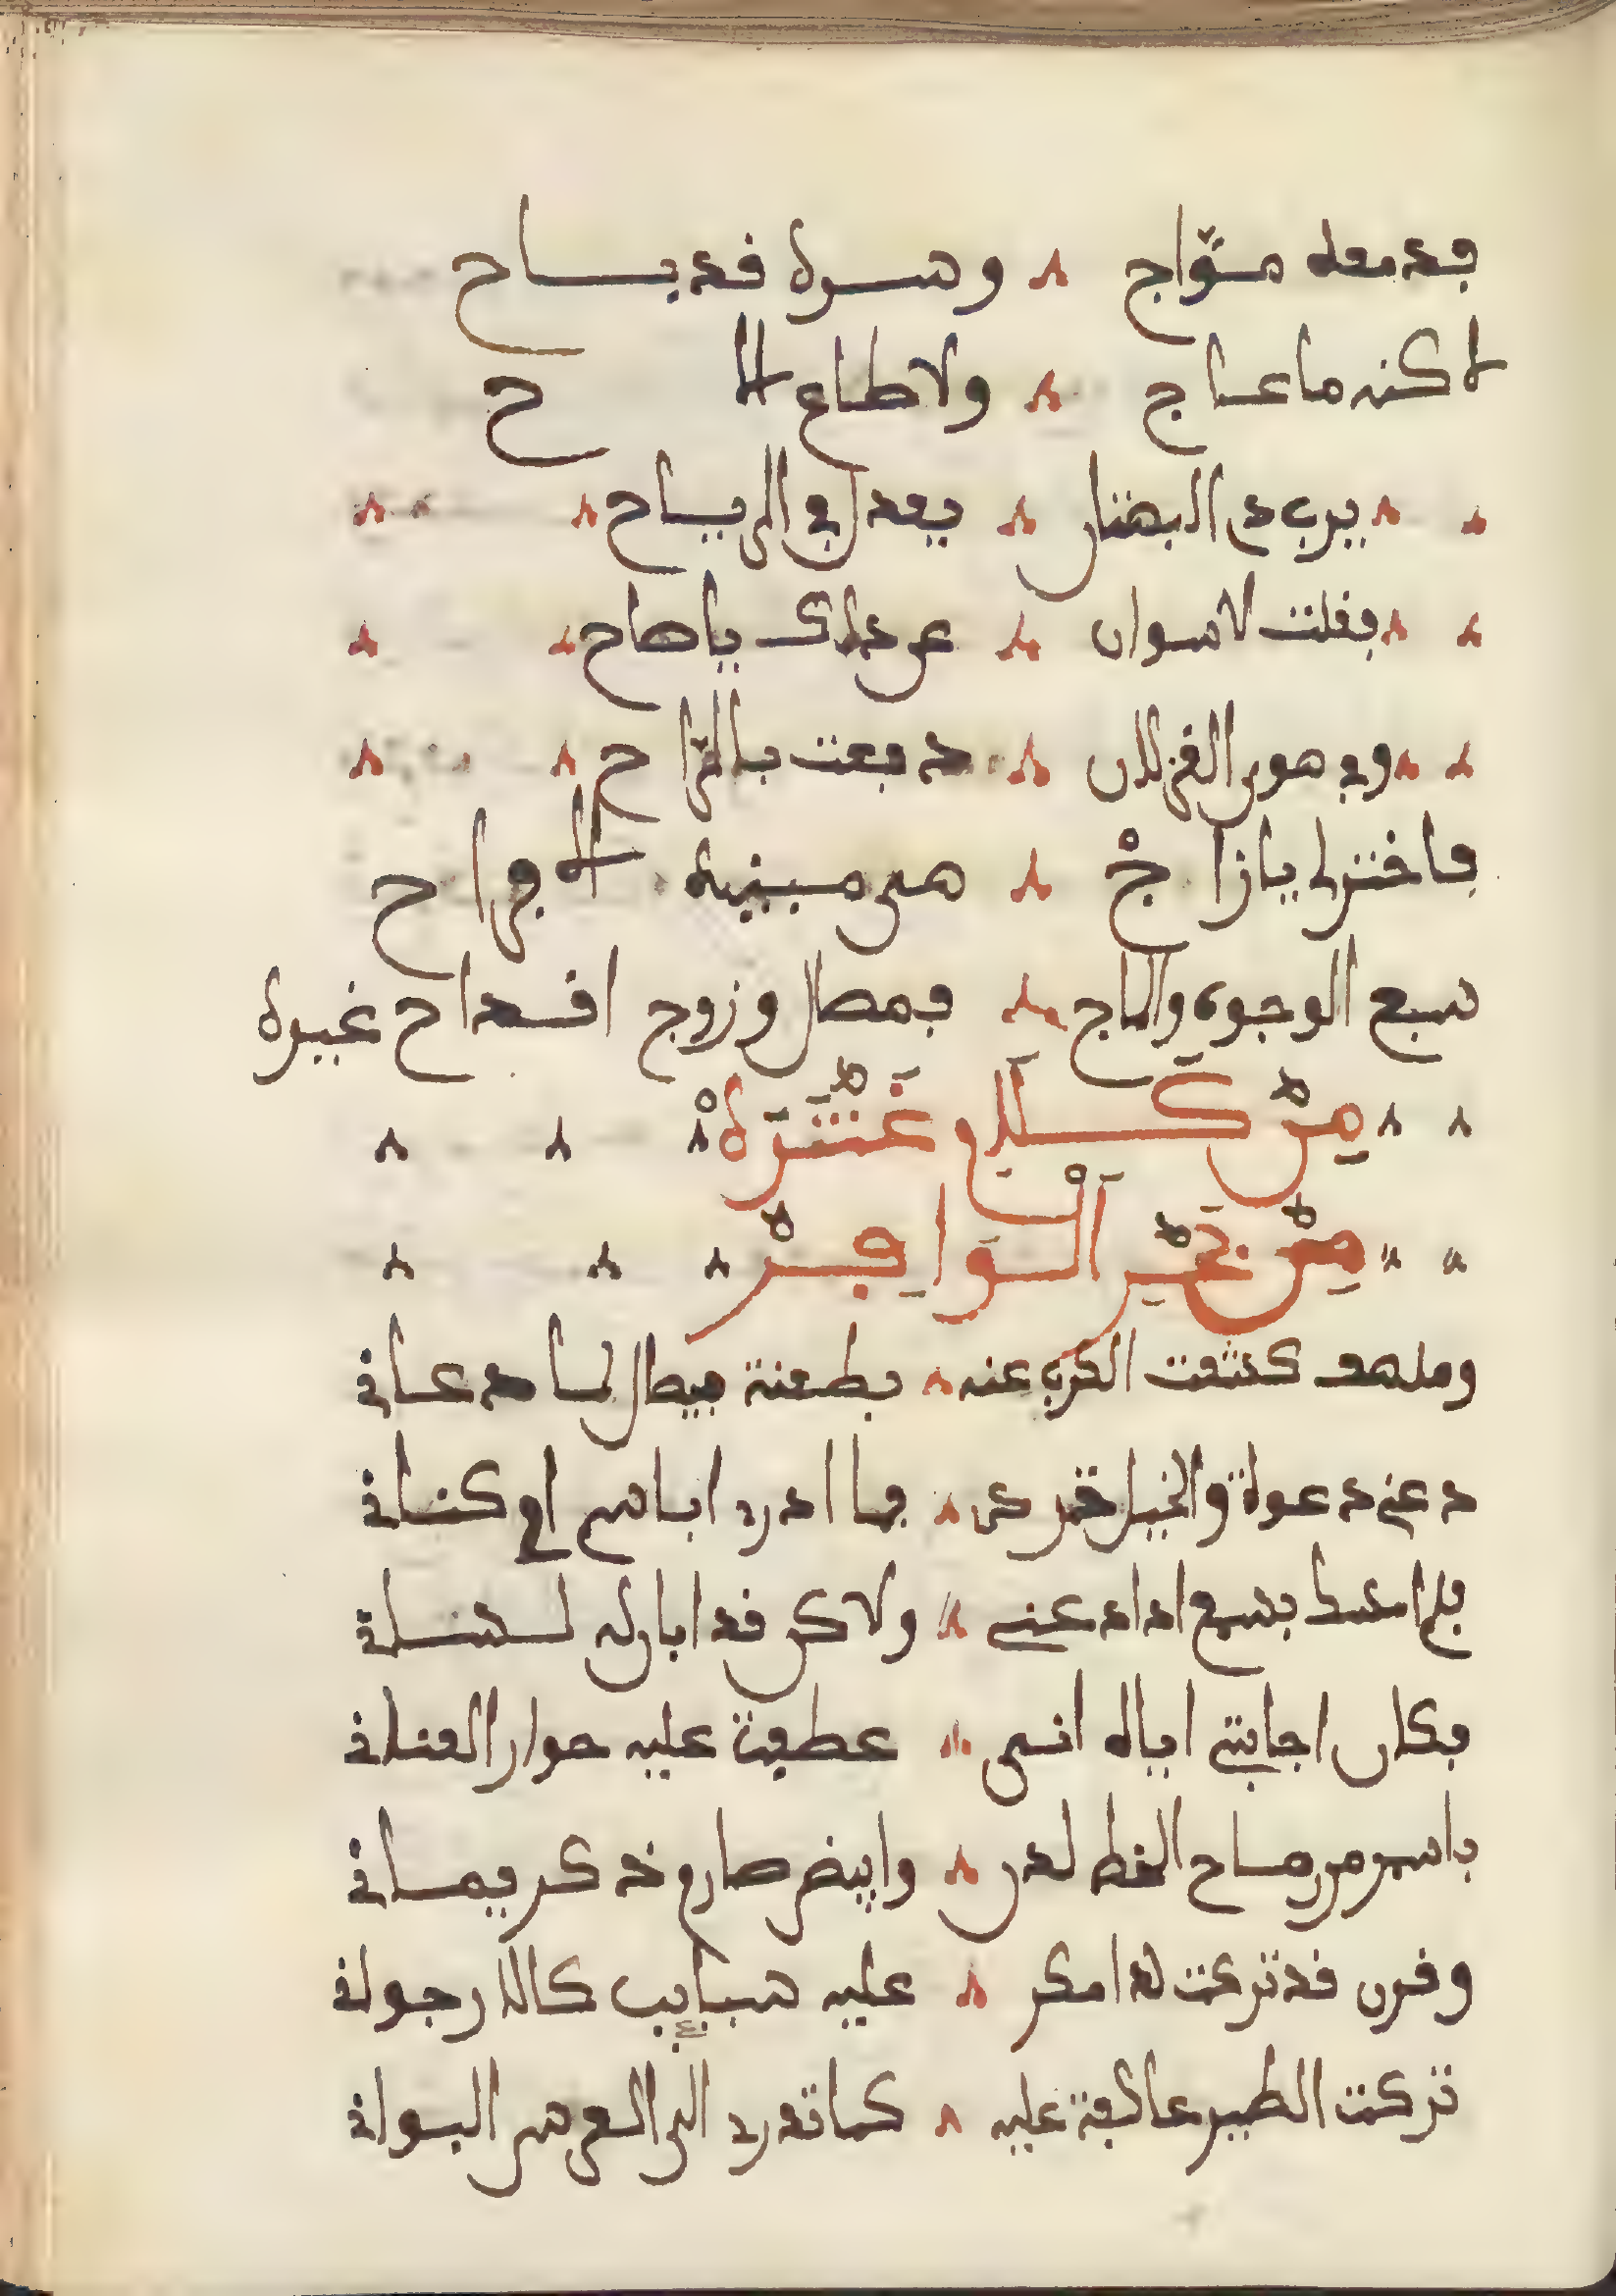 فدمعه موّاج ۸ وسره قد باح
لاكنه ما عاج ۸ ولا طاع اللاح
يرى دم البهتان ۸ يعدل في الرياح
فقلت لاسوان ۸ عن ذاك يا صاح
وفي هوى الغزلان ۸ دفعت بالراح
فاختر لي يا زاجْ ۸ هي مبنية الافراح
سبع الوجوه والتاج ۸ فمصل وزوج اقداح غيره
مِنْ كَلَامِ عَنْتَرَهْ
مِنْ بَحْرِ الْوَافِرْ
ومكروب كشفت الكرب عنه ۸ بطعنة فيصل لما دعاني
دعني دعوة والخيل تردى ۸ فما ادري اباسم ام كناني
فلم امسك بسمع اذ دعني ۸ ولاكن قد ابان له لساني
فكان اجابتي اياه اني ۸ عطفت عليه خوار العناني
باسمر من رماح الخط لدن ۸ وابيض صارم ذكر يماني
وقرن قد تركت لدا مكر ۸ عليه سبايب كالارجواني
تركت الطير عاكفة عليه ۸ كما تردي الى العرس البواني